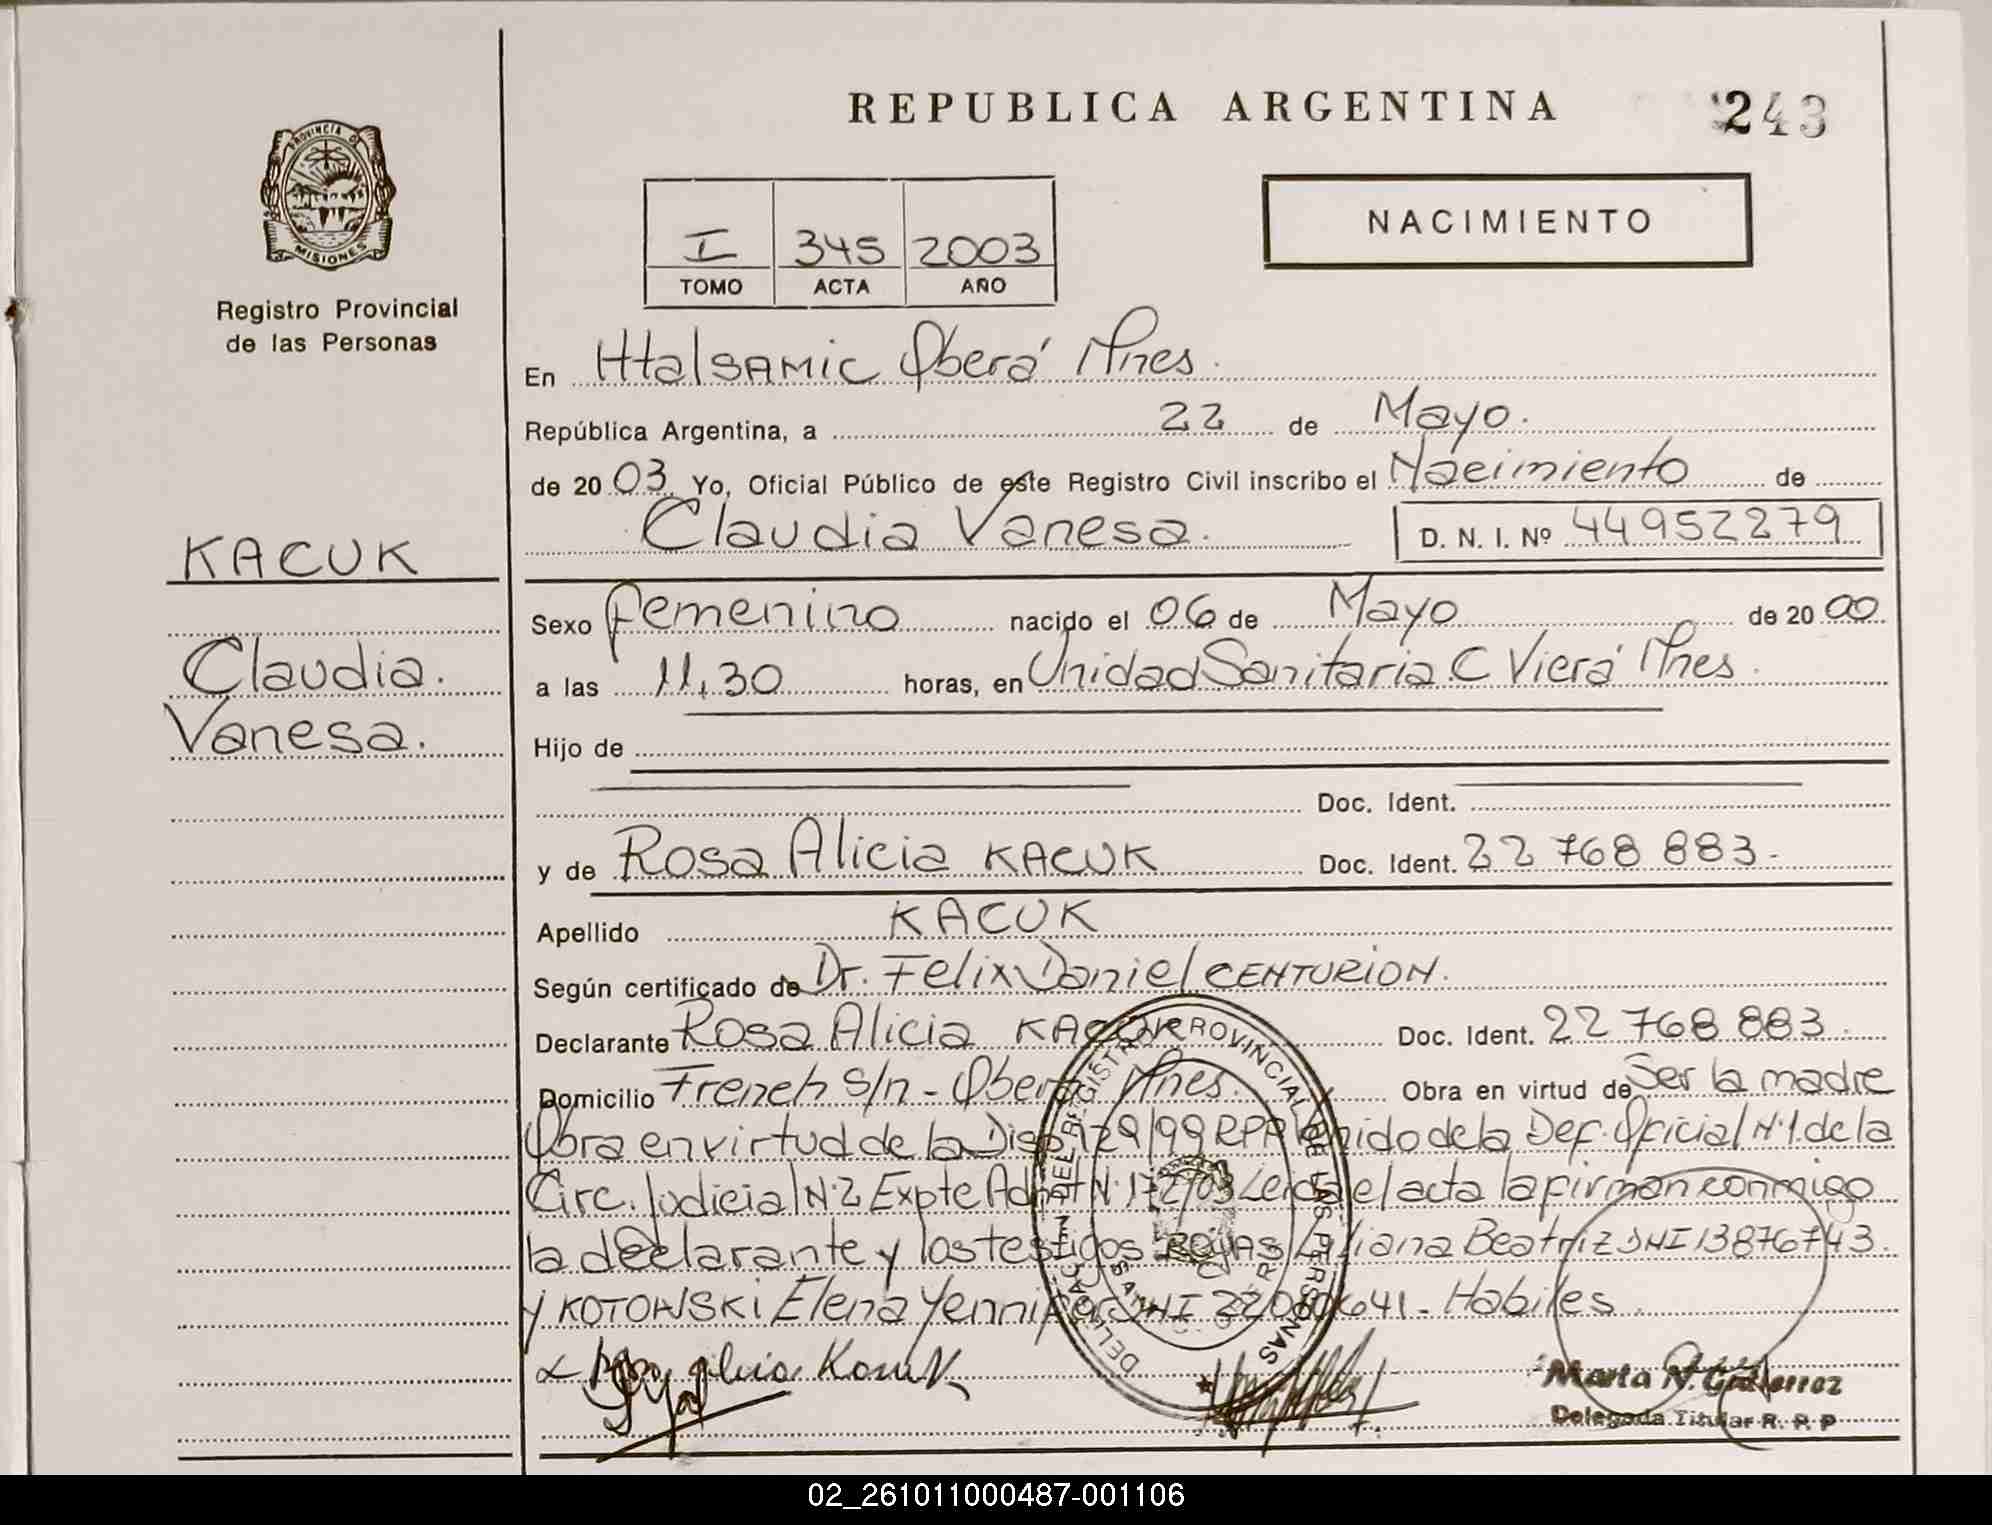 REPUBLICA ARGENTINA
243
PROVINCIA DE
MISIONES
Registro Provincial
de las Personas
I 345 2003
TOMO ACTA AÑO
NACIMIENTO
En Htal SAMIC Oberá Mnes.
República Argentina, a 22 de Mayo.
de 2003. Yo, Oficial Público de este Registro Civil inscribo el Nacimiento de
Claudia Vanesa.
D. N. I. Nº 44952279
KACUK
Claudia.
Vanesa.
Sexo femenino nacido el 06 de Mayo de 2000
a las 11,30 horas, en Unidad Sanitaria C Vierá Mnes.
Hijo de
Doc. Ident.
y de Rosa Alicia KACUK Doc. Ident. 22 768 883.-
Apellido KACUK
Según certificado de Dr. Felix Daniel CENTURION.
Declarante Rosa Alicia KACUK Doc. Ident. 22 768 883.
Domicilio French s/n - Oberá Mnes. Obra en virtud de Ser la madre
Obra en virtud de la Disp 129/99 RPP de la Def. Oficial N.1. de la
Circ. Judicial N.2 Expte N. 172/03 Leida el acta la firman conmigo
la declarante y los testigos ROJAS Liliana Beatriz DNI 13876743.
y KOTOWSKI Elena Yennifer DNI - Habiles
DELEGACION DEL REGISTRO PROVINCIAL DE LAS PERSONAS
Marta N. Gutierrez
Delegada Titular R. P. P
02_261011000487-001106